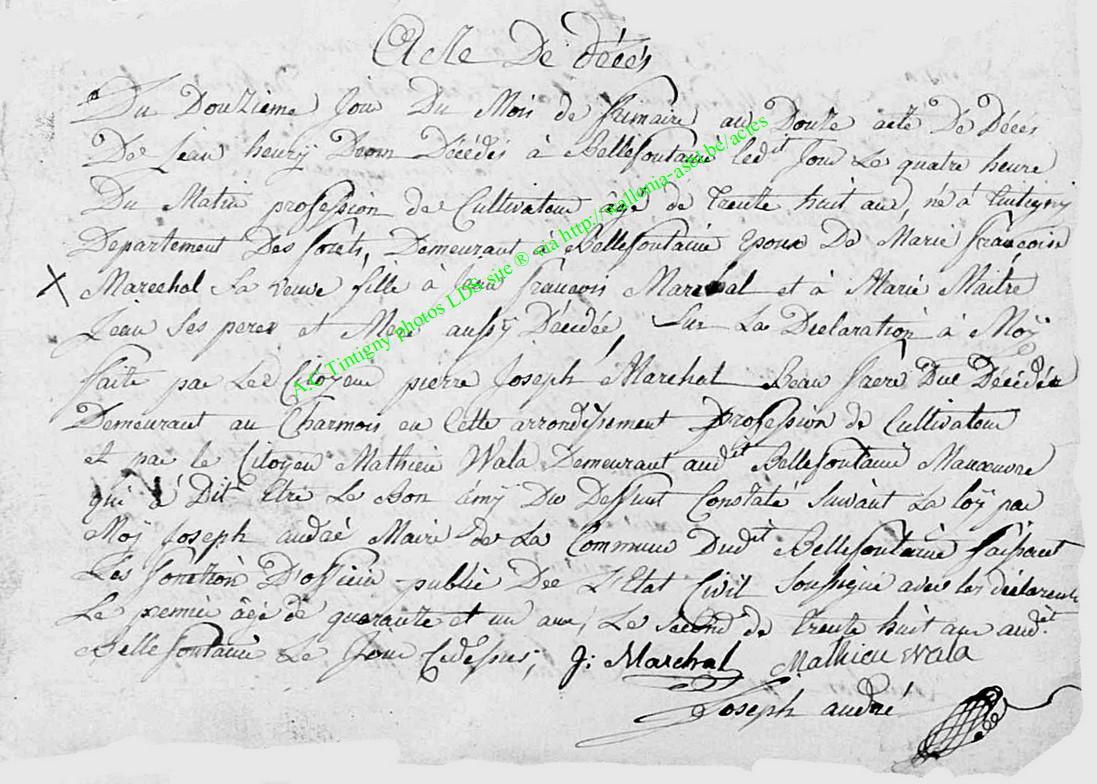 Acte De décés
Du Douzieme Jour Du Mois de frimaire an Douze acte De Déces
De Jean henrÿ Décédés à Bellefontaine ledit Jour Le quatre heure
Du Matin profession de Cultivateur âgé de trente huit ans, né à tintigny
Departement Des forets, Demeurant à Bellefontaine Epoux De Marie françoise
Marechal Sa veuve fille à Jean françois Marechal et à Marie Maitre
Jean Ses peres et Mere aussÿ Décédée, Sur La Declaration à Moÿ
faite par Le Citoyen pierre Joseph Marchal Beau frere Du Décédée
Demeurant au Charmois en Cette arrondissement profession de Cultivateur
et par le Citoyen Mathieu Wala Demeurant audit Bellefontaine Manœuvre
qui à Dit Etre Le Bon amÿ Du Deffunt Constaté Suivant La loÿ par
Moÿ Joseph andré Maire de La Commune Dudit Bellefontaine faissant
Les fonction D'officier public De L'Etat Civil Soussigné avec les déclarents
Le premier âgé de quarante et un ans, Le Second de trente huit ans audit
Bellefontaine Le Jour Cydessus; J: Marchal Mathieu wala
Joseph andré
A.C Tintigny photos LDS site ® via http://wallonia-asbl.be/actes